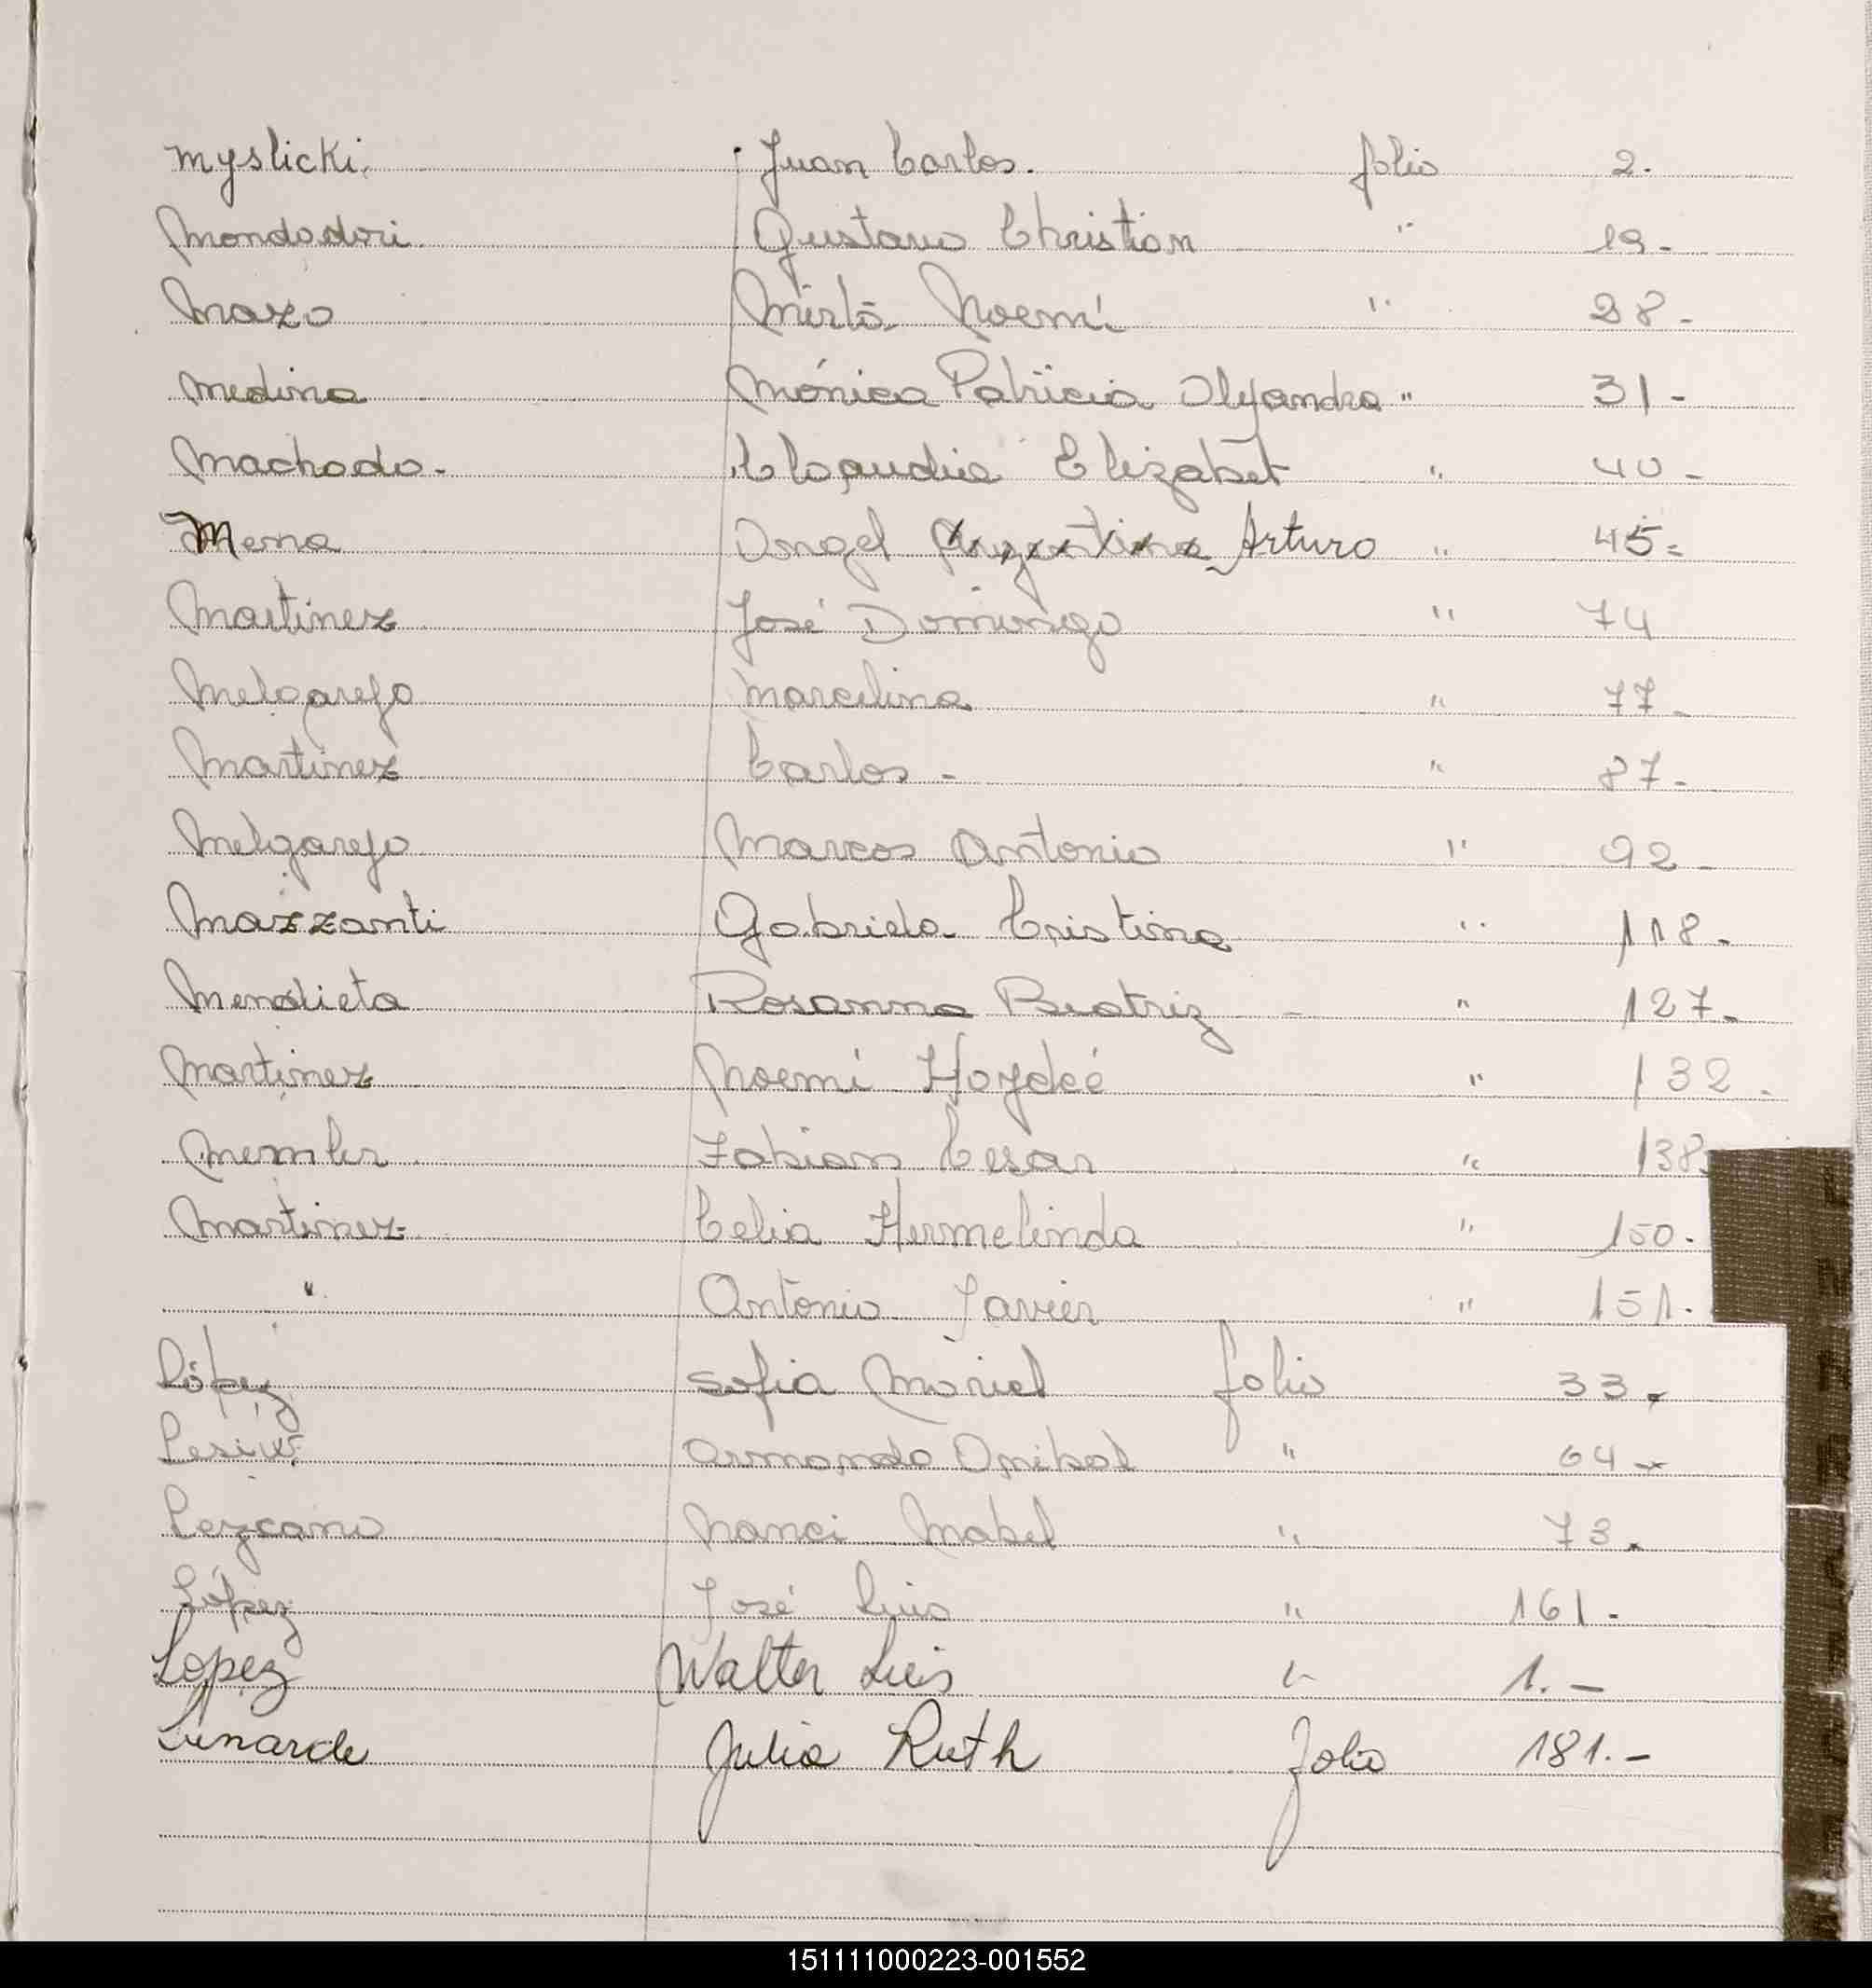 Myslicki Juan Carlos. folio 2.
Mondodori Gustavo Christian " 19-
Mazo Mirta Noemí " 28-
Medina Mónica Patricia Alejandra " 31-
Machado- Claudia Elizabet " 40-
Mena Angel Argentino Arturo " 45=
Martinez José Domingo " 74
Melgarejo Marcelina " 77-
Martinez Carlos- " 87-
Melgarejo Marcos Antonio " 92-
Mazzanti Gabriela Cristina " 118-
Mendieta Rosanna Beatriz - " 127-
Martinez Noemí Haydeé " 132-
Memler Fabian Cesar " 138
Martinez Celia Hermelinda " 150.
" Antonio Javier " 151.
López Sofia Mariel folio 33.
Armando Anibal " 64-
Lezcano Nanci Mabel " 73.
López José Luis " 161.
Lopez Walter Luis " 1.-
Julia Ruth folio 181.-
151111000223-001552